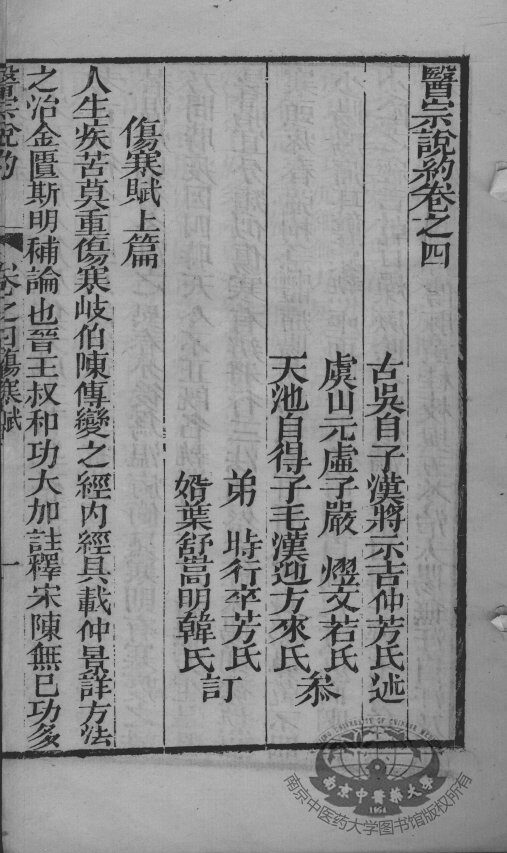 醫宗說約卷之四
古吳自了漢蔣示吉仲芳氏述
虞山元虛子嚴 熠文若氏
天池自得子毛漢迎方來氏 叅
弟 時行卒芳氏
婿葉舒嵩明韓氏 訂
傷寒賦上篇
人生疾苦莫重傷寒岐伯陳傳變之經內經具載仲景詳方法
之治金匱斯明補論也晉王叔和功大加註釋宋陳無已功多
醫宗說約 卷之四傷寒賦 一
南京中醫藥大學
1954
南京中医药大学图书馆版权所有